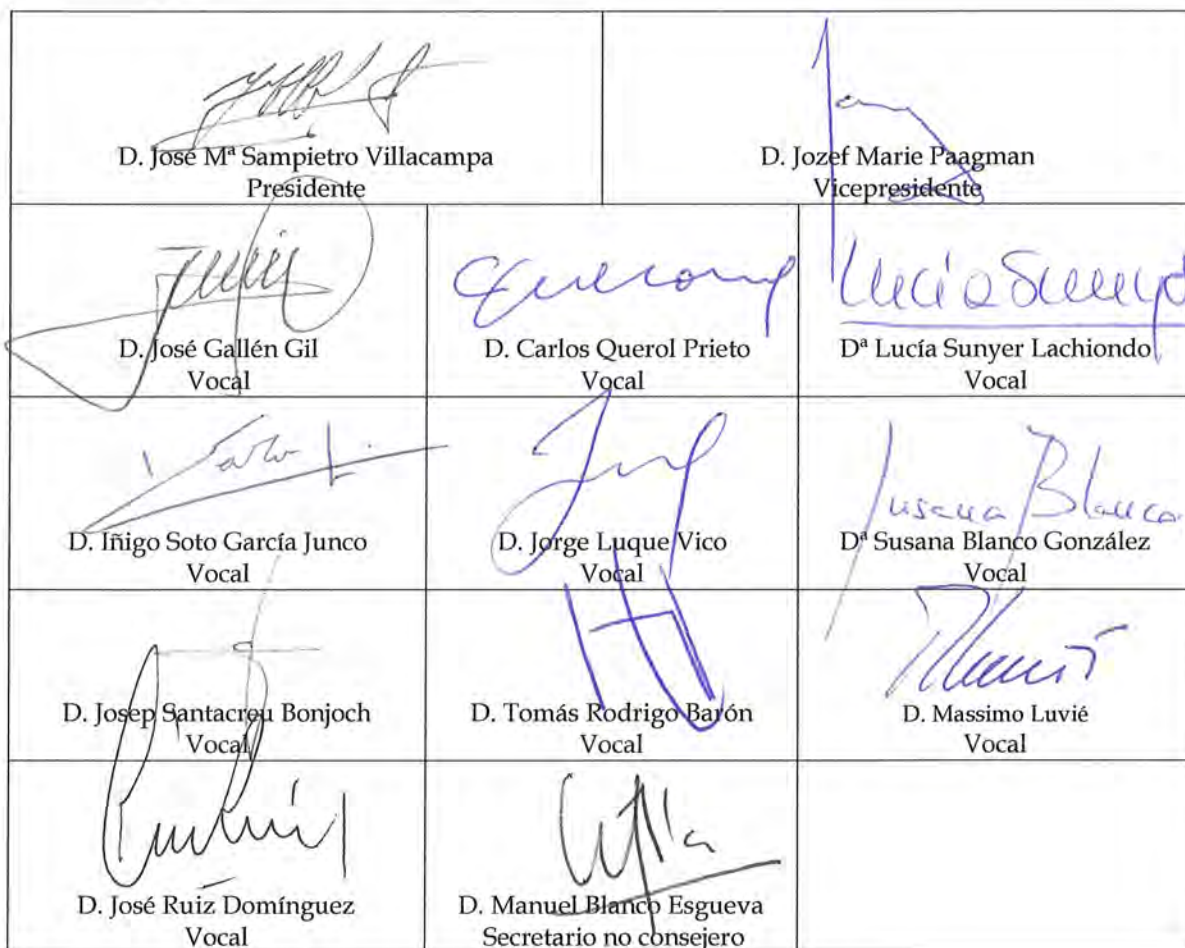 D. José Mª Sampietro Villacampa
Presidente
D. Jozef Marie Paagman
Vicepresidente
D. José Gallén Gil
Vocal
D. Carlos Querol Prieto
Vocal
Dª Lucía Sunyer Lachiondo
Vocal
D. Iñigo Soto García Junco
Vocal
D. Jorge Luque Vico
Vocal
Susana Blanco
Dª Susana Blanco González
Vocal
D. Josep Santacreu Bonjoch
Vocal
D. Tomás Rodrigo Barón
Vocal
D. Massimo Luvié
Vocal
D. José Ruiz Domínguez
Vocal
D. Manuel Blanco Esgueva
Secretario no consejero